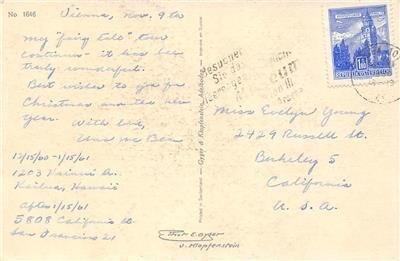 No 1646
Vienna, Nov. 9th
My "fairy tale" tour
continues - it has been
truly wonderful.
Best wishes to you for
Christmas and the New
Year.
With love,
12/15/60 - 1/15/61
1203 Dr.
Kailua, Hawaii
After 1/15/61
5808 California St.
San Francisco 21
Printed in Switzerland - Gyger & Klopfenstein, Adelboden
E. Gyger
v. Klopfenstein
Besuchet
Wien
1.50
REPUBLIK ÖSTERREICH
Miss Evelyn Young
2429 Russell St.
Berkeley 5
California
U.S.A.